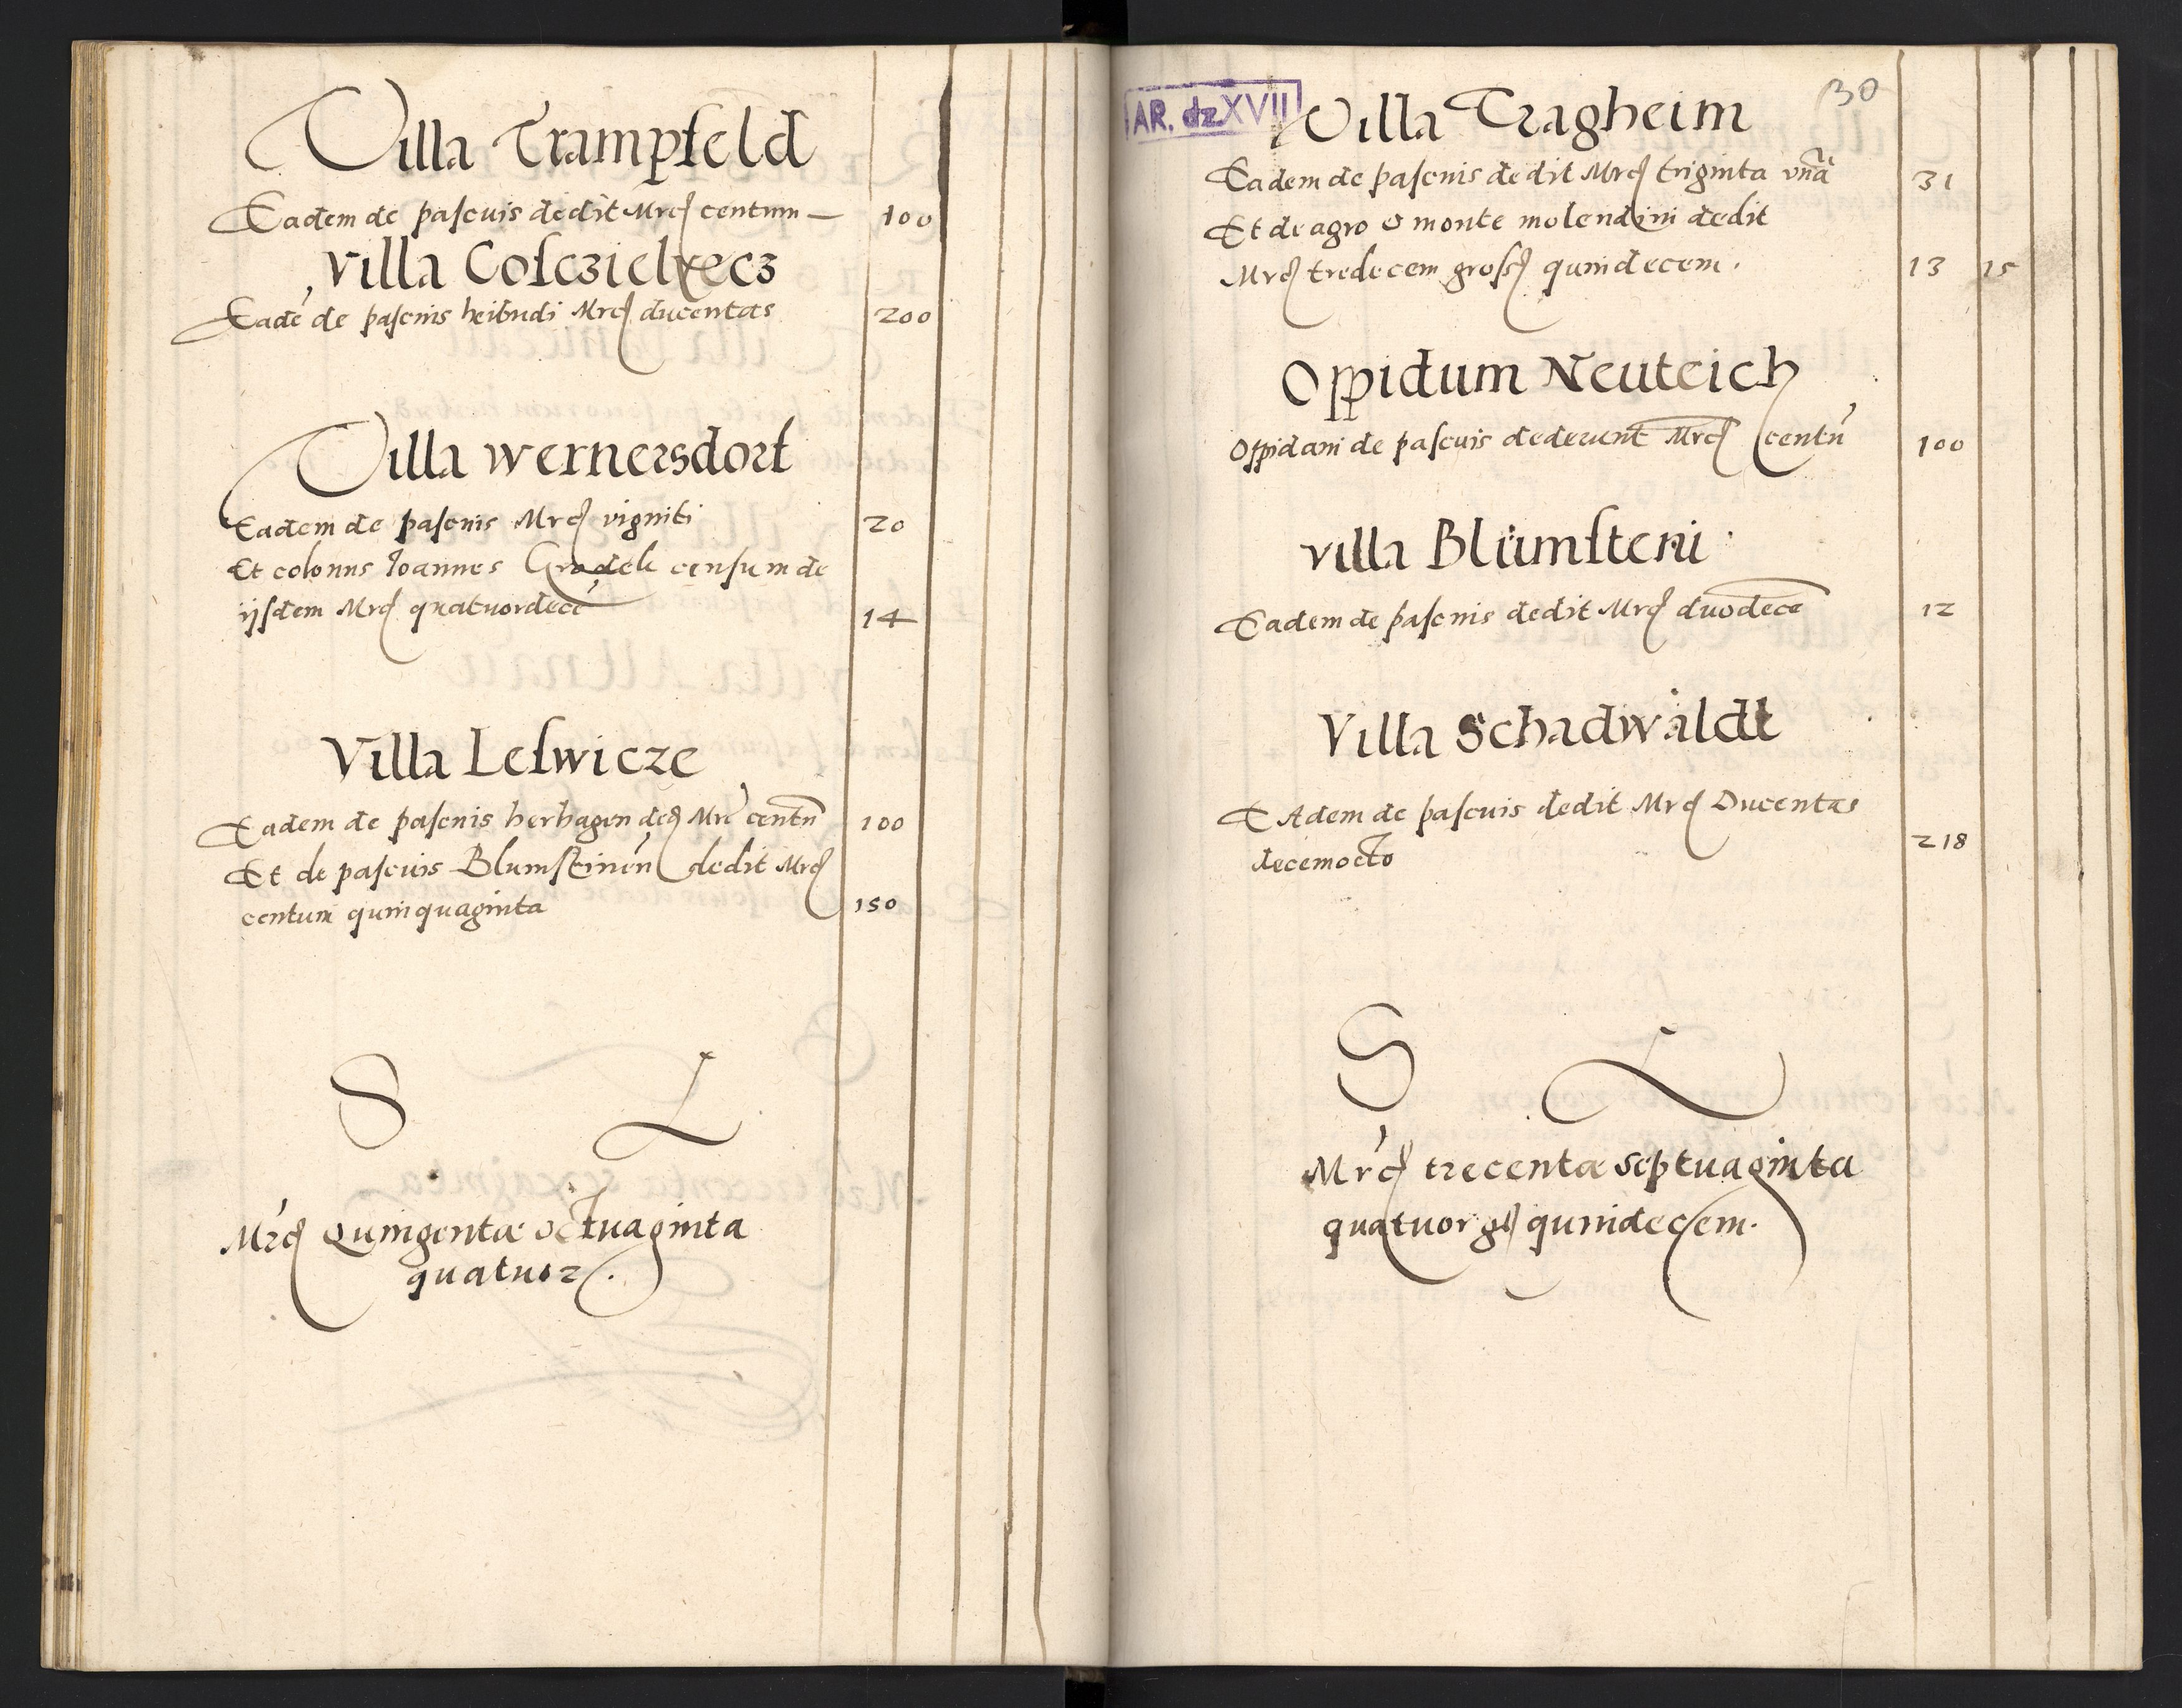 Villa Trampfeld
Eadem de pascuis dedit Mrcꝭ centum — 100
Villa Cosczielxecz
Eadē de pascuis heibudi Mrcꝭ ducentas 200
Villa wernersdorf
Eadem de pascuis Mrcꝭ viginti 20
Et colonus Joannes censum de
ijsdem Mrcꝭ quatuordecē 14
Villa Leswicze
Eadem de pascuis herhagen Mrc centū 100
Et de pascuis Blumsteinen dedit Mrcꝭ
centum quinquaginta 150
S L
Mrcꝭ Quingentæ octuaginta
quatuor.
AR. dz XVII
30
Villa Tragheim
Eadem de pascuis dedit Mrcꝭ triginta vnā 31
Et de agro e monte molendini dedit
Mrcꝭ tredecem grossꝭ quindecem. 13 15
Oppidum Neuteich
Oppidani de pascuis dederunt Mrcꝭ centū 100
villa Blumsteni
Eadem de pascuis dedit Mrcꝭ duodecē 12
Villa Schadwaldt
EAdem de pascuis dedit Mrcꝭ Ducentas
decemocto 218
S L
Mrcꝭ trecentæ septuaginta
quatuor gꝭ quindecem.